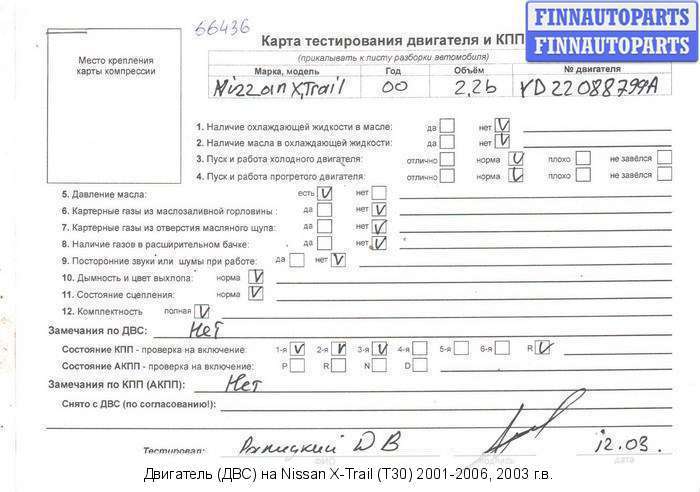 66436
FINNAUTOPARTS
FINNAUTOPARTS
Карта тестирования двигателя и КПП
(прикалывать к листу разборки автомобиля)
Место крепления
карты компрессии
Марка, модель Год Объём № двигателя
Nizzan X,Trail 00 2,2б YD22088799A
1. Наличие охлаждающей жидкости в масле: да нет V
2. Наличие масла в охлаждающей жидкости: да нет V
3. Пуск и работа холодного двигателя: отлично норма V плохо не завёлся
4. Пуск и работа прогретого двигателя: отлично норма V плохо не завёлся
5. Давление масла: есть V нет
6. Картерные газы из маслозаливной горловины : да нет V
7. Картерные газы из отверстия масляного щупа: да нет V
8. Наличие газов в расширительном бачке: да нет V
9. Посторонние звуки или шумы при работе: да нет V
10. Дымность и цвет выхлопа: норма V
11. Состояние сцепления: норма V
12. Комплектность полная V
Замечания по ДВС: Нет
Состояние КПП - проверка на включение: 1-я V 2-я V 3-я V 4-я 5-я 6-я R V
Состояние АКПП - проверка на включение: P R N D
Замечания по КПП (АКПП): Нет
Снято с ДВС (по согласованию!):
Тестировал: Д В 12.03.
ФИО подпись дата
Двигатель (ДВС) на Nissan X-Trail (T30) 2001-2006, 2003 г.в.